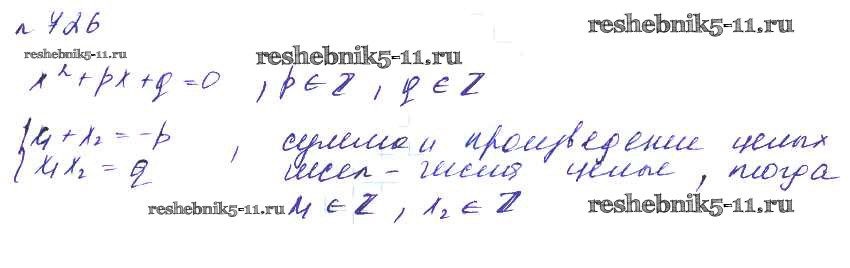 № 726
reshebnik5-11.ru
reshebnik5-11.ru reshebnik5-11.ru
x² + px + q = 0 , p ∈ Z , q ∈ Z
{ x₁ + x₂ = -p , сумма и произведение целых
{ x₁x₂ = q чисел - числа целые, тогда
reshebnik5-11.ru x₁ ∈ Z , x₂ ∈ Z reshebnik5-11.ru